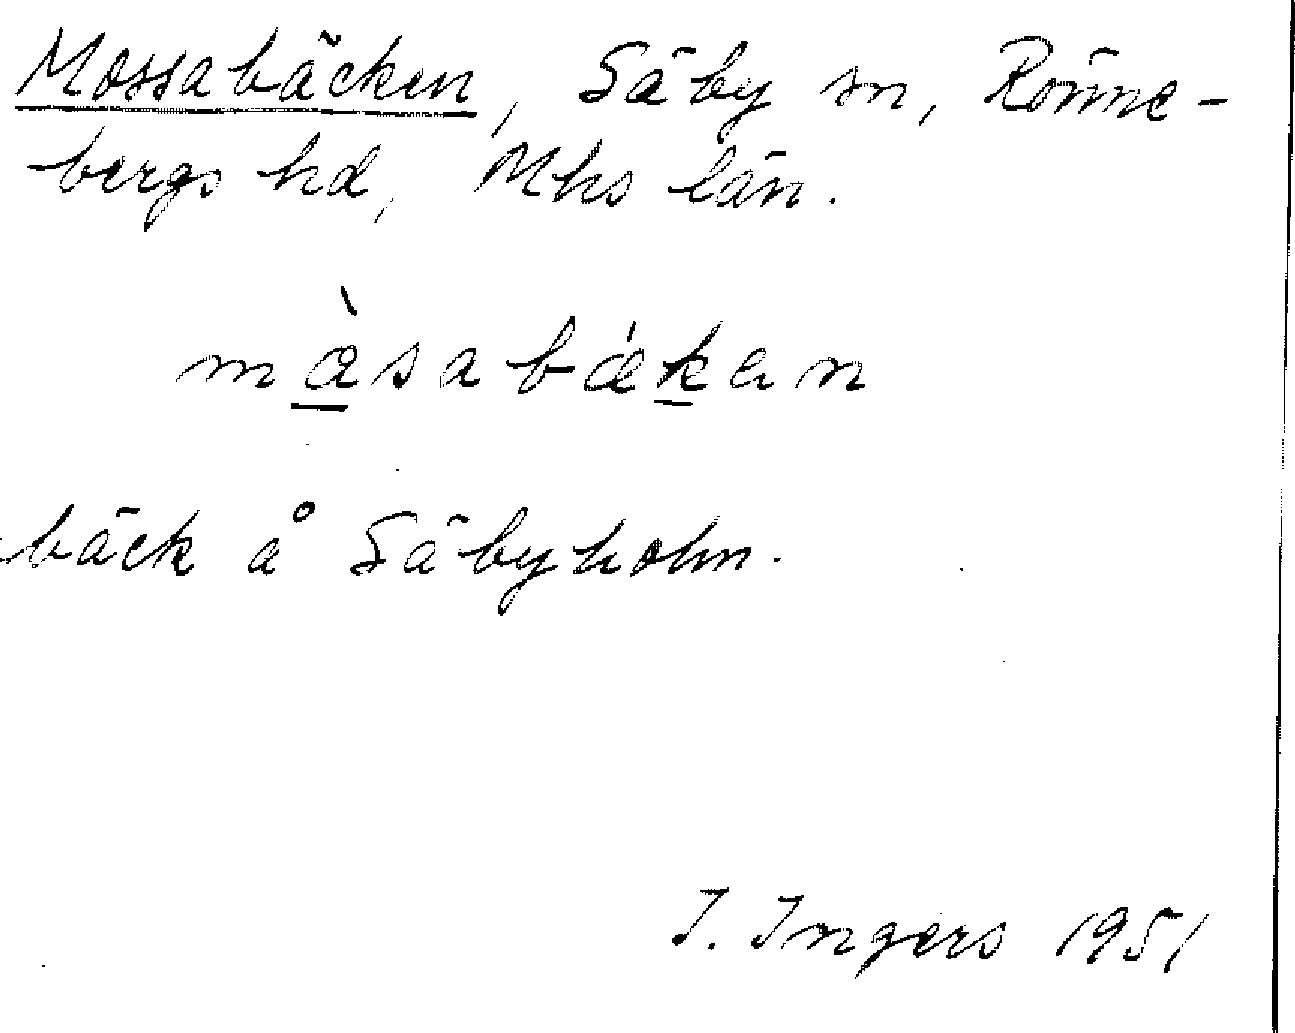 Mossabäcken, Säby sn, Rönne-
bergs hd, Mhs län.
màsabǽkan
bäck å Säbyholm.
I. Ingers 1951